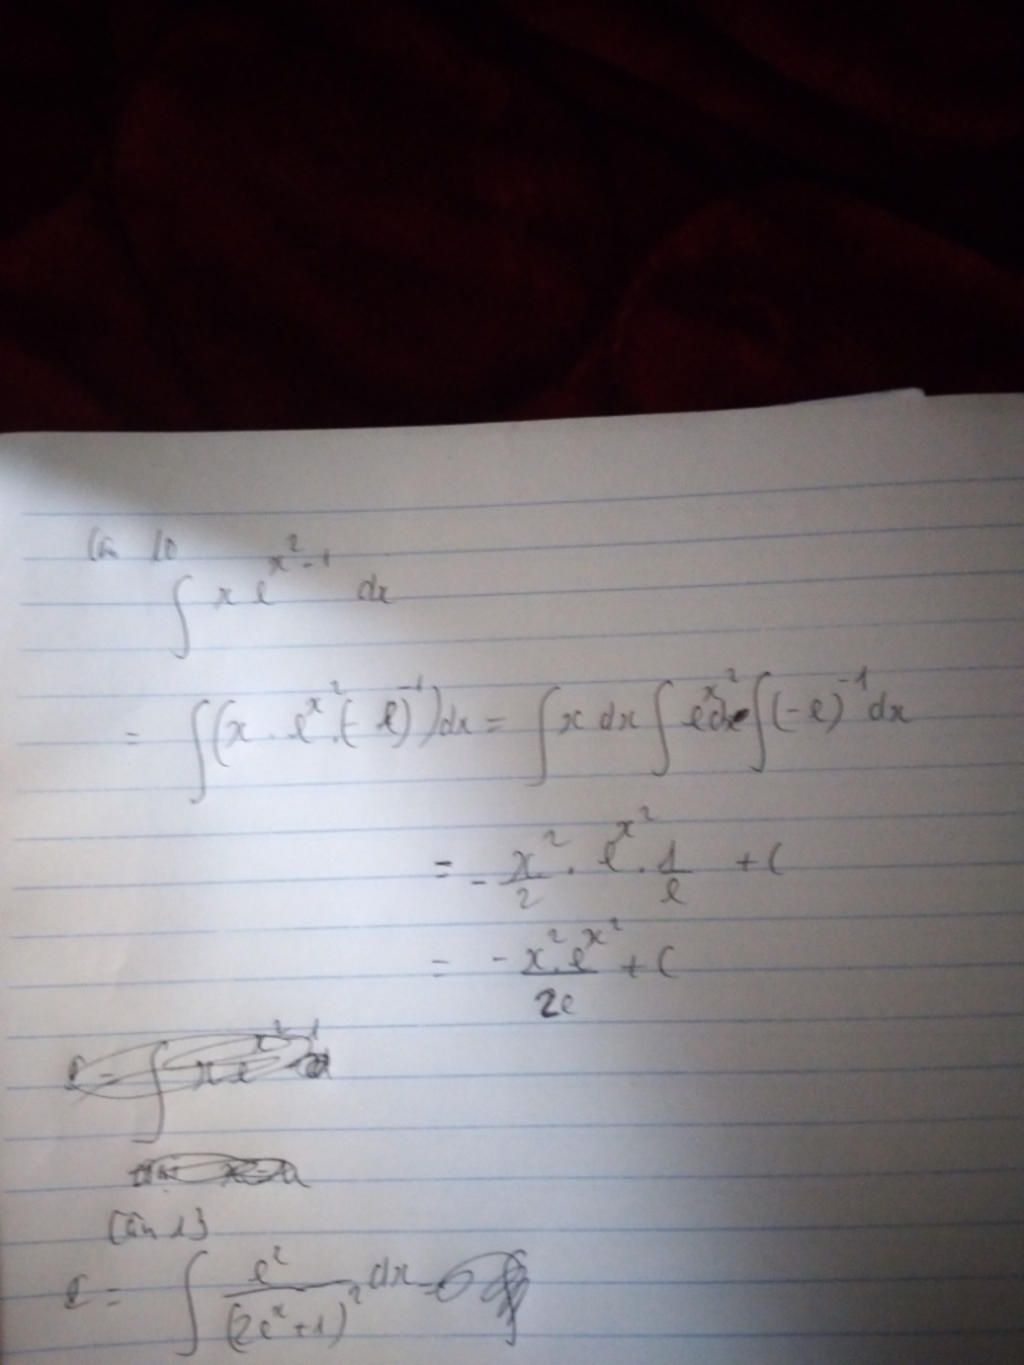 Câu 10
∫ x e^{x²-1} dx
= ∫(x . e^{x²} .(- e)^{-1})dx = ∫ x dx ∫ e^{x²}dx ∫(-e)^{-1} dx
= - x²/2 . e^{x²} . 1/e + C
= - x².e^{x²}/2e + C
∫ x e^{x²-1}
Câu 13
I = ∫ e²/(2e^x+1)² dx